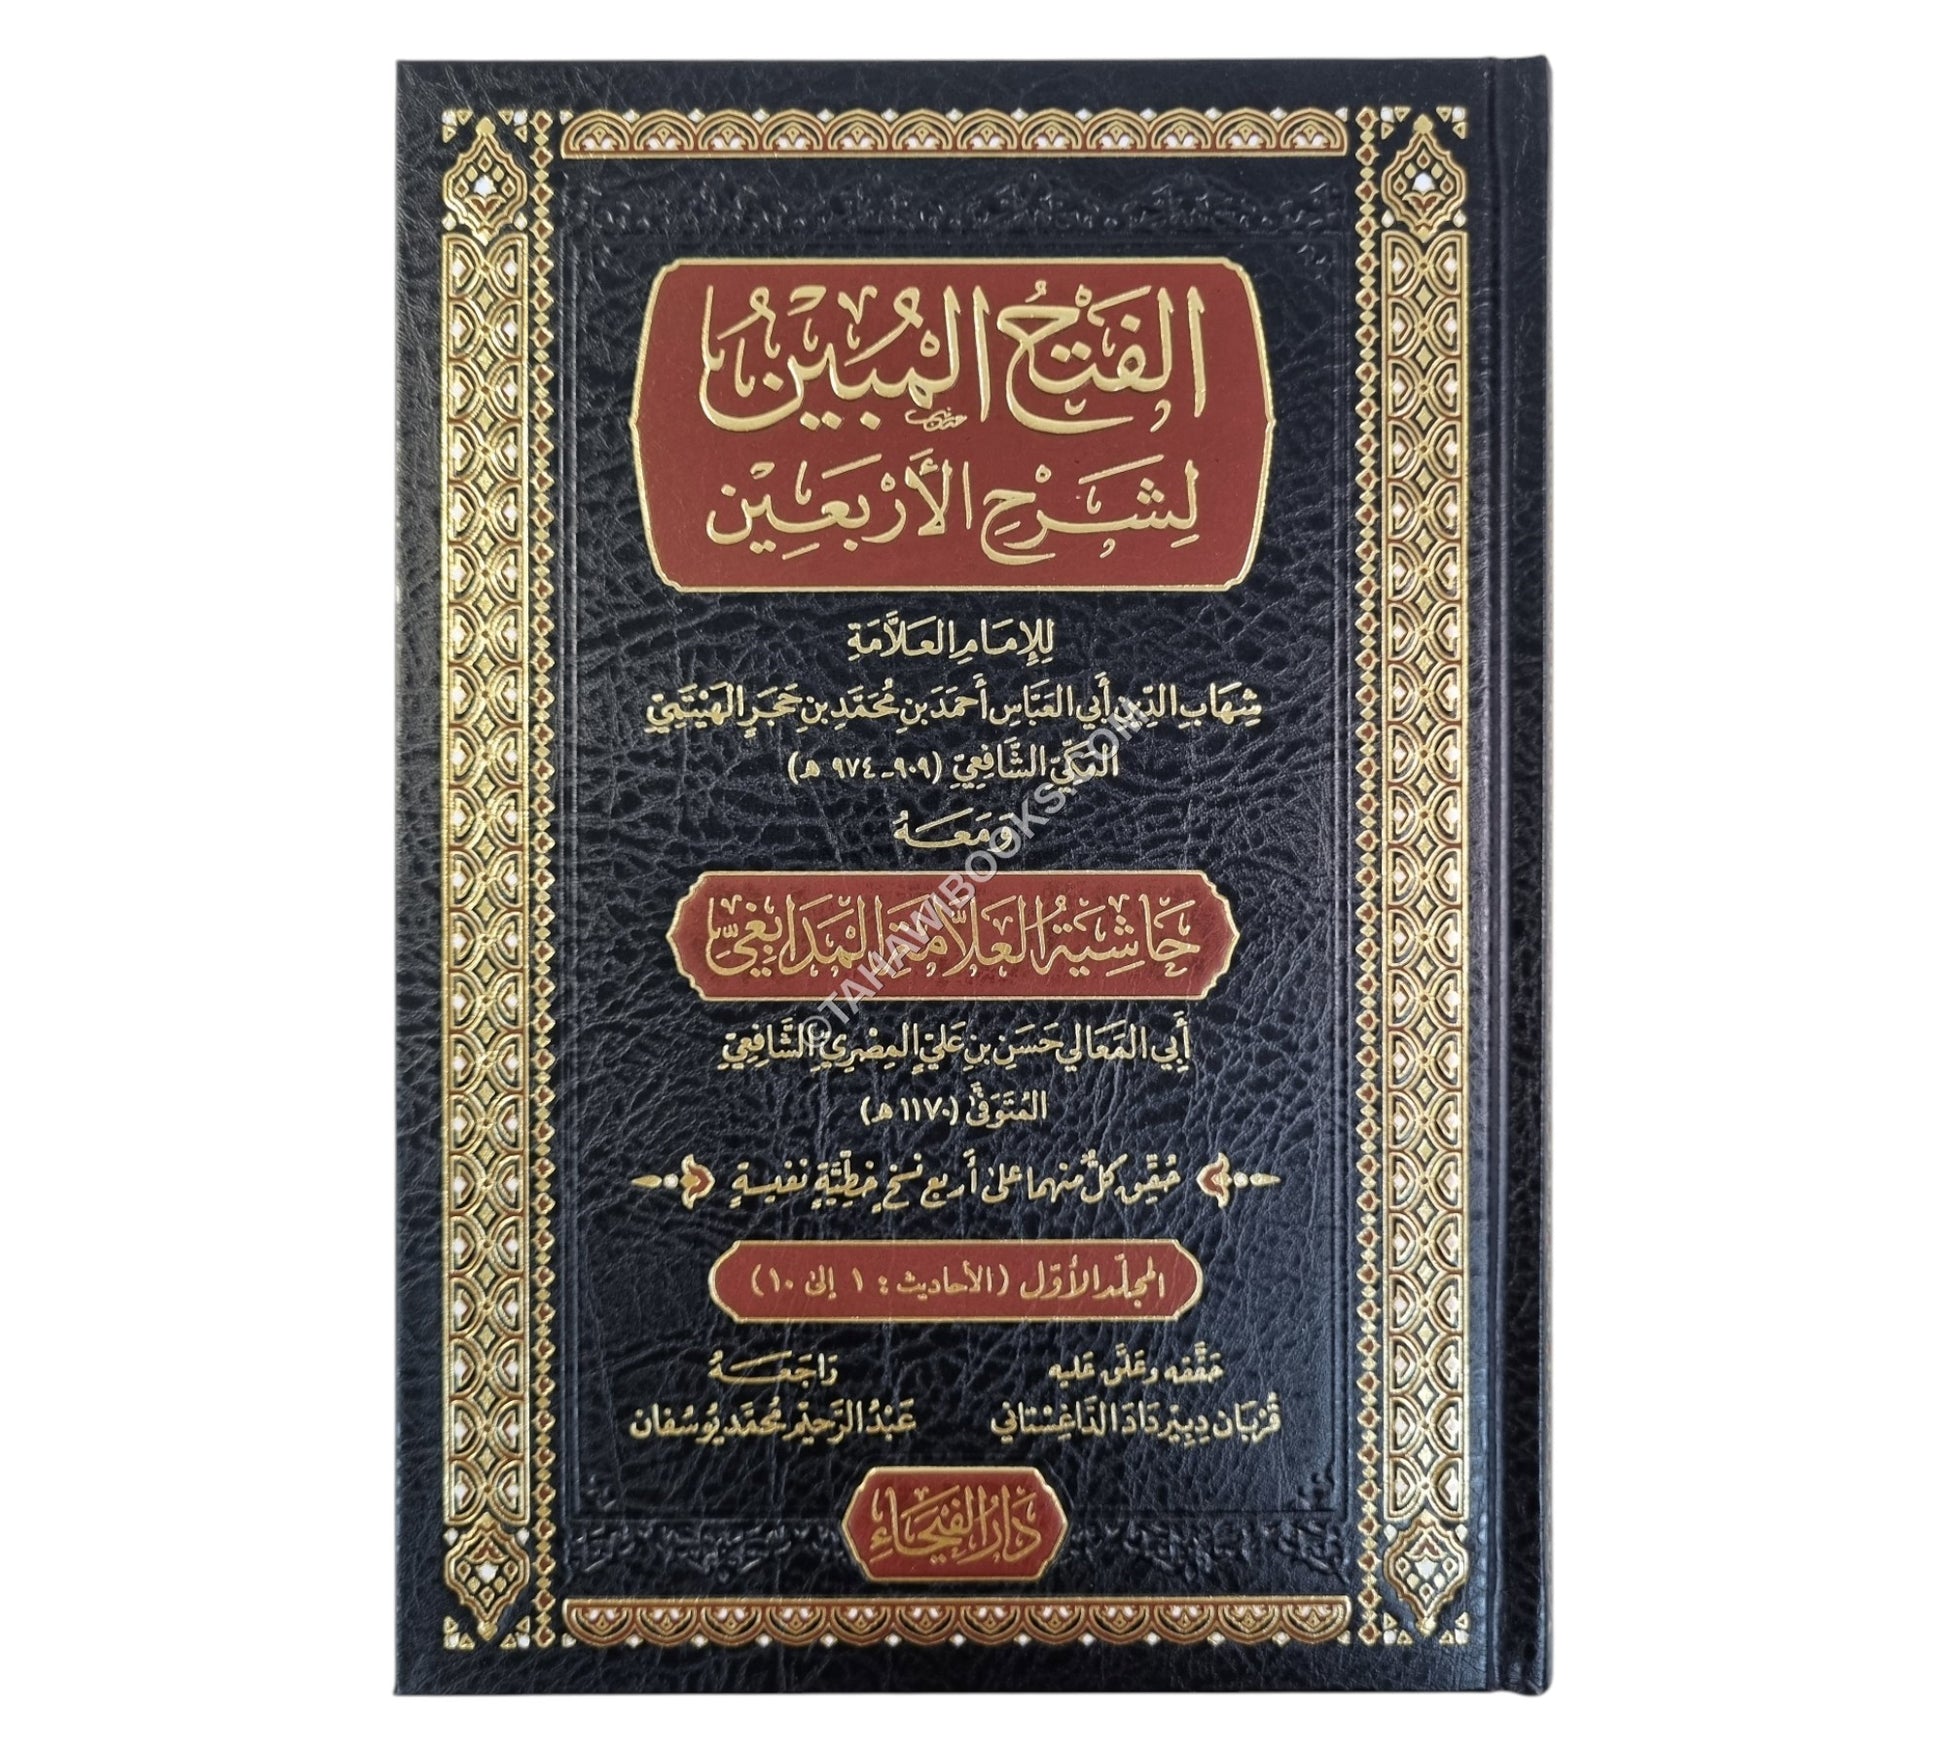 الفَتْحُ المُبِيْنُ
لِشَرْحِ الأَرْبَعِيْنَ
لِلإِمَامِ العَلَّامَةِ
شِهَابِ الدِّينِ أَبِي العَبَّاسِ أَحْمَدَ بنِ مُحَمَّدِ بنِ حَجَرٍ الهَيْتَمِيِّ
المَكِّيِّ الشَّافِعِيِّ (٩٠٩-٩٧٤ هـ)
وَمَعَهُ
حَاشِيَةُ العَلَّامَةِ المَدَابِغِيِّ
أَبِي المَعَالِي حَسَنِ بنِ عَلِيٍّ المِصْرِيِّ الشَّافِعِيِّ
المُتَوَفَّىٰ (١١٧٠ هـ)
حُقِّقَ كُلٌّ منهما علىٰ أربع نسخٍ خطِّيَّةٍ نفيسةٍ
المجلد الأوّل (الأحاديث: ١ إلىٰ ١٠)
حَقَّقه وعَلَّق عَليه
قُرْبَان دِبِيْردَادَا الدَّاغِسْتاني
رَاجَعَهُ
عَبْدُ الرَّحِيْم مُحَمَّد يُوسُفَان
دَارُ الفَيْحَاءِ
©TAHAWIBOOKS.COM